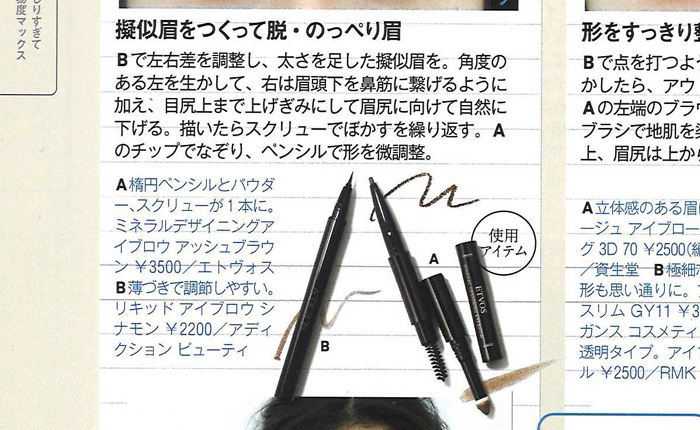 しりすぎて
易度マックス
擬似眉をつくって脱・のっぺり眉
Bで左右差を調整し、太さを足した擬似眉を。角度の
ある左を生かして、右は眉頭下を鼻筋に繋げるように
加え、目尻上まで上げぎみにして眉尻に向けて自然に
下げる。描いたらスクリューでぼかすを繰り返す。A
のチップでなぞり、ペンシルで形を微調整。
A楕円ペンシルとパウダ
ー、スクリューが1本に。
ミネラルデザイニングア
イブロウ アッシュブラウ
ン ¥3500／エトヴォス
B薄づきで調節しやすい。
リキッド アイブロウ シ
ナモン ¥2200／アディ
クション ビューティ
使用
アイテム
A
B
ETVOS
形をすっきり整
Bで点を打つよ
かしたら、アウ
Aの左端のブラ
ブラシで地肌を
上、眉尻は上か
A立体感のある眉
ージュ アイブロー
グ 3D 70 ¥2500(編
／資生堂 B極細
形も思い通りに。
スリム GY11 ¥3
ガンス コスメティ
透明タイプ。アイ
ル ¥2500／RMK